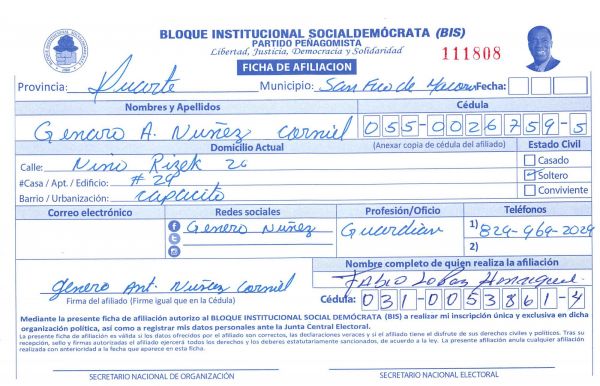 BLOQUE INSTITUCIONAL SOCIALDEMÓCRATA (BIS)
PARTIDO PEÑAGOMISTA
Libertad, Justicia, Democracia y Solidaridad
111808
FICHA DE AFILIACION
Provincia: Duarte Municipio: San Fco de Macorís Fecha:
Nombres y Apellidos Cédula
Genaro A. Nuñez Corniel 055-0026759-5
Domicilio Actual (Anexar copia de cédula del afiliado) Estado Civil
Calle: Nino Rizek 26
Casado
#Casa / Apt. / Edificio: # 29
Soltero
Barrio / Urbanización: capacito
Conviviente
Correo electrónico Redes sociales Profesión/Oficio Teléfonos
Genero Nuñez Guardian 1) 829-969-2029
2)
Nombre completo de quien realiza la afiliación
genero Ant. Nuñez Corniel Fabio Lopez
Firma del afiliado (Firme igual que en la Cédula) Cédula: 031-0053861-4
Mediante la presente ficha de afiliación autorizo al BLOQUE INSTITUCIONAL SOCIAL DEMÓCRATA (BIS) a realizar mi inscripción única y exclusiva en dicha
organización política, así como a registrar mis datos personales ante la Junta Central Electoral.
La presente ficha de afiliación es válida si los datos ofrecidos por el afiliado son correctos, las declaraciones veraces y si el afiliado tiene el disfrute de sus derechos civiles y políticos. Tras su
recepción, sello y firmas autorizadas el afiliado ejercerá todos los derechos y los deberes estatutariamente sancionados, de acuerdo a la ley. La presente afiliación anula cualquier afiliación
realizada con anterioridad a la fecha que aparece en esta ficha.
SECRETARIO NACIONAL DE ORGANIZACIÓN SECRETARIO NACIONAL ELECTORAL